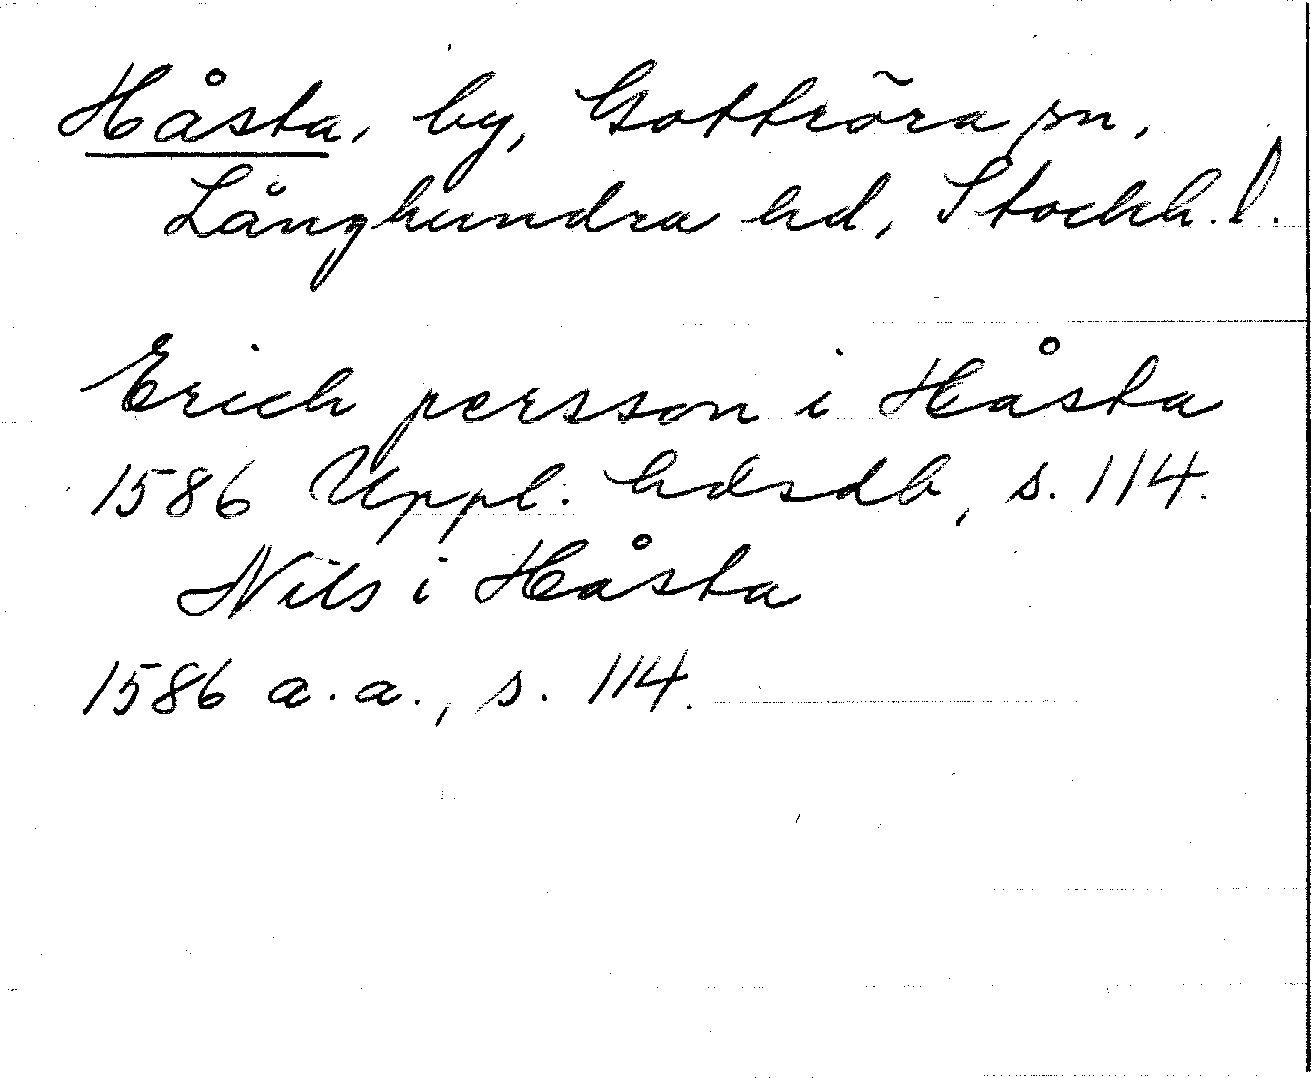 Håsta, by, Gottröra sn,
Långhundra hd, Stockh. l.
Erich persson i Håsta
1586 Uppl. hdsdb, s. 114.
Nils i Håsta
1586 a.a., s. 114.